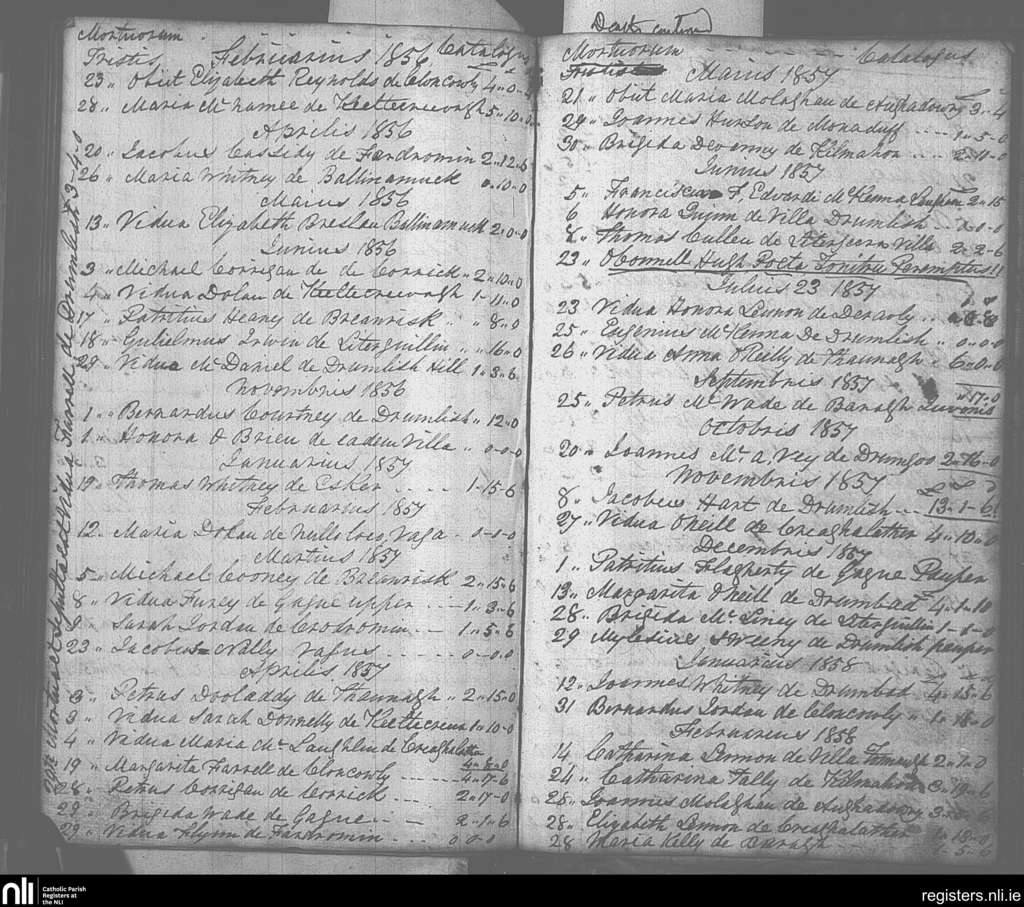 Mortuorum Catalogus
Tristis Februarius 1856
23 " Obiit Elizabeth Reynolds de Cloncowly 4-0-
28 " Maria McNamee de Keeltecreevagh 5-10-0
Aprilis 1856
20 " Jacobus Cassidy de Fardromin 2-12-6
26 " Maria Whitney de Ballinamuck 0-10-0
Maius 1856
13 " Vidua Elizabeth Breslan Ballinamuck 2-0-0
Junius 1856
3 " Michael Corrigan de de Corrick " 2-10-0
4 " Vidua Dolan de Keeltecreevagh 1-11-0
17 " Patritius Heany de Breanrisk " " 8-0
18 " Gulielmus Irwin de Leterguillin " " 16-0
29 " Vidua Mc Daniel de Drumlish Hill 1-3-6
Novembris 1856
1 " Bernardus Courtney de Drumlish " 12-0
1 " Honora O Brien de eadem Villa " 0-0-0
Januarius 1857
19 " Thomas Whitney de Esker .... 1-15-6
Februarius 1857
12 " Maria Dolan de nullo loco, Vaga - 0-0-0
Martius 1857
5 " Michael Cooney de Breanrisk 2-15-6
8 " Vidua Furey de Gague upper ... 1-3-6
8 " Sarah Jordan de Crodromin .. - 1-5-6
23 " Jacobus Nally Vagus ... 0-0-0
Aprilis 1857
3 " Petrus Dooladdy de Thaunagh " 2-15-0
3 " Vidua Sarah Donnelly de Keeltecreva 1-10-0
4 " Vidua Maria Mc Laughlin de Creaghalatha
4-8-0
19 " Margarita Farrell de Cloncowly ------ 4-17-6
28 " Petrus Corrigan de Corrick ... 2-17-0
29 " Brigida Wade de Gague .. - 2-1-6
29 " Vidua Flynn de Fardromin ... 0-0-0
29th Mortua et Sepulta est Vidua Farrell de Drumlish 3-4-0
Deaths continued
Mortuorum Catalogus
Maius 1857
21 " Obiit Maria Molaghan de Aughadowry 3-4
29 " Joannes Hurson de Monaduff .... 1-5-0
30 " Brigida Devanny de Kilmahon ... 2-11-0
Junius 1857
5 " Franciscus F. Edvardi McKenna Pauper 2-15
6 Honora Quinn de Villa Drumlish .. 2-0-0
8 " Thomas Cullen de Villa 2-2-6
23 " O Connell Hugh Poeta Tonitru Peremptus!!
Julius 23 1857
23 Vidua Honora Lennon de ..
25 " Eugenius McKenna De Drumlish " 0-0-0
26 " Vidua Anna O Reilly de Thaunagh - 6-0-0
Septembris 1857
" 17-0
25 " Petrus Mc Wade de Baragh
Octobris 1857
20 " Joannes Mc a, Vey de Drumgoo 2-16-0
Novembris 1857
8 " Jacobus Hart de Drumlish ... 13-1-6
27 " Vidua O'Neill de Creaghalather 4-10-0
Decembris 1857
1 " Patritius Flagherty de Gague Pauper
13 " Margarita O'Neill de Drumbad 4-1-10
28 " Brigida Mc Liney de Leterguillin 1-8-0
29 Mylesius Sweeny de Drumlish pauper
Januarius 1858
12 " Joannes Whitney de Drumbad 4-15-6
31 Bernardus Jordan de Cloncowly " 1-18-0
Februarius 1858
14 Catharina Lennon de Villa 2-1-0
24 " Catharina Tally de Kilmahon 3-19-6
28 " Joannes Molaghan de Aughadowry
28 " Elizabeth Lennon de Creaghalather
28 Maria Kelly de Baragh -
nli Catholic Parish
Registers at
the NLI
registers.nli.ie